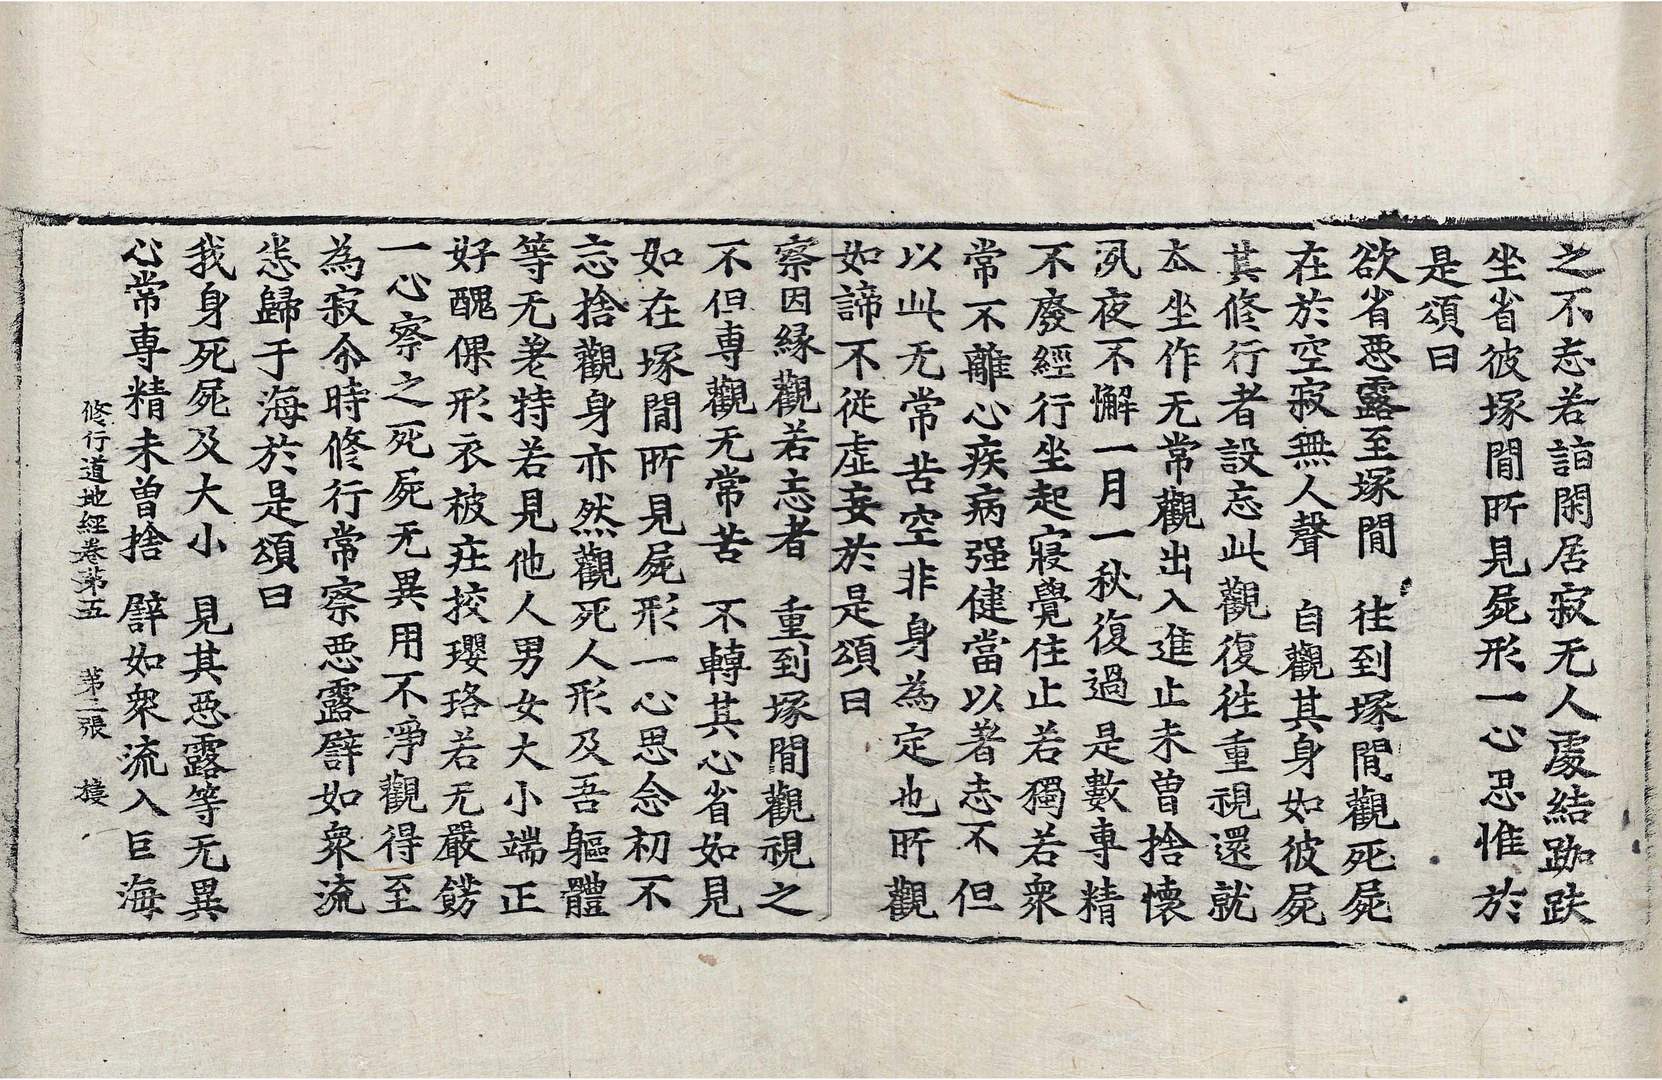 之不忘若詣閑居寂无人處結跏趺
坐省彼塚間所見屍形一心思惟於
是頌曰
欲省惡露至塚間　往到塚間觀死屍
在於空寂無人聲　自觀其身如彼屍
其修行者設忘此觀復往重視還就
本坐作无常觀出入進止未曾捨懷
夙夜不懈一月一秋復過是數專精
不廢經行坐起寢覺住止若獨若衆
常不離心疾病强健當以著志不但
以此无常苦空非身為定也所觀
如諦不從虛妄於是頌曰
察因緣觀若忘者　重到塚間觀視之
不但專觀无常苦　不轉其心省如見
如在塚間所見屍形一心思念初不
忘捨觀身亦然觀死人形及吾軀體
等无差特若見他人男女大小端正
好醜倮形衣被莊挍瓔珞若无嚴餝
一心察之死屍无異用不淨觀得至
為寂尒時修行常察惡露譬如衆流
悉歸于海於是頌曰
我身死屍及大小　見其惡露等无異
心常專精未曾捨　譬如衆流入巨海
修行道地經卷第五　第二張　樓